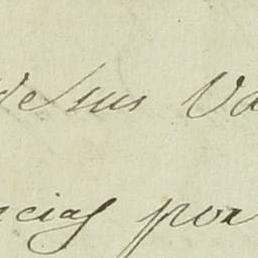 de sus Va
ncias por